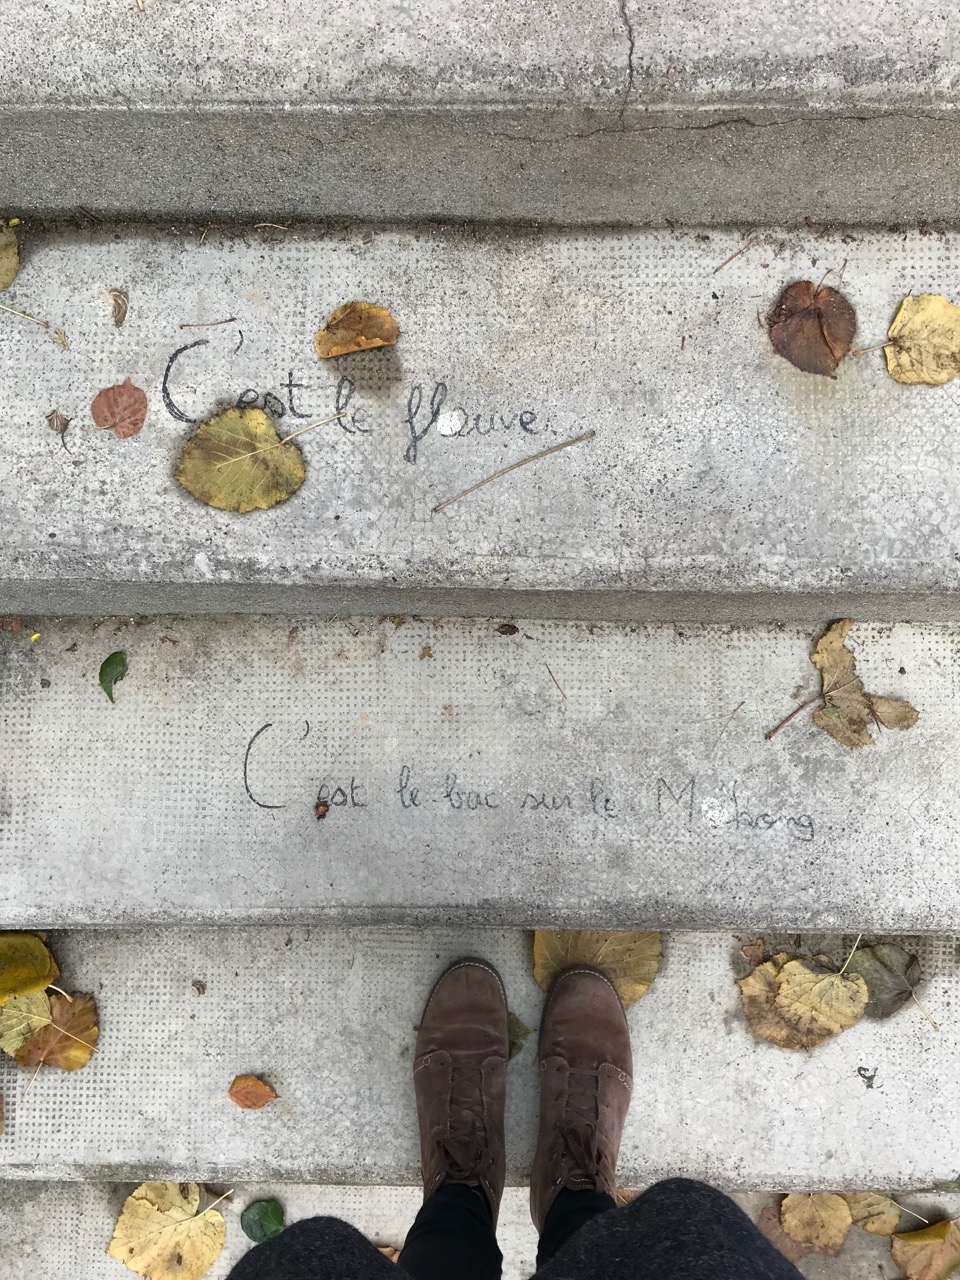 C'est le fleuve.
C'est le bac sur le Mékong